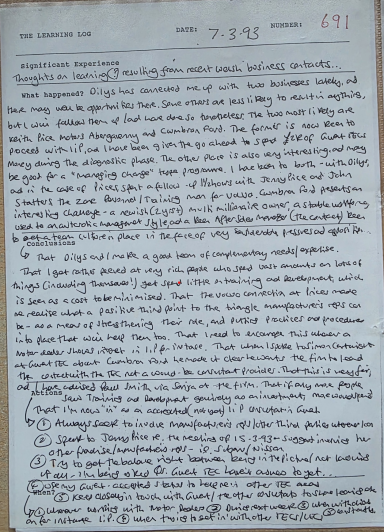 THE LEARNING LOG
DATE: 7-3-93 NUMBER: 691
Significant Experience
Thoughts on learning resulting from recent Welsh business contacts...
What happened? Dilys has connected me up with two businesses lately, and
there may well be opportunities there. Some others are less likely to result in anything,
but I will follow them up (and have done so) nonetheless. The two most likely are
Keith Price Motors Abergavenny and Cwmbran Ford. The former is now keen to
proceed with IIP, and I have been given the go ahead to spend of Gwent TEC's
money during the diagnostic phase. The other place is also very interesting, and may
be good for a "managing change" type programme. I have been to both - with Dilys,
and in the case of Prices, spent a follow-up 1½ hours with Jenny Price and John
the Personnel/Training man for Volvo. Cwmbran Ford presents an
interesting challenge - a newish multi millionaire owner, a stable workforce
used to an management style, and a keen Aftersales Manager (the contact) keen
to get a team culture in place in the face of very
Conclusions
That Dilys and I make a good team of complementary needs/expertise.
That I get rather peeved at very rich people who spend vast amounts on lots of
things (including themselves!) yet spend little on training and development, which
is seen as a cost to be minimised. That the Volvo connection at Prices made
me realise what a positive third point to the triangle manufacturer's reps can
be - as a means of strengthening their role, and putting practices and procedures
in place that will help them too. That I need to encourage this when a
motor dealer shows interest in IIP for instance. That when I spoke to
at Gwent TEC about Cwmbran Ford he made it clear he wants the firm to lead
the contact with the TEC not a would-be consultant/provider. That this is very fair,
and I have advised Paul Smith via Sonja at the firm. That if any more people
saw Training and Development genuinely as an investment,
That I'm now "in" as an accredited (not yet) IIP consultant in Gwent
Actions
① Always seek to involve manufacturers rep/other third parties where I can
② Speak to Jenny Price re. the meeting of 15-3-93 + suggest involving her
other franchise/manufacturers rep - ie. Nissan
③ Try to get the balance right between being in the picture/not involved
at all - I'm being asked for Gwent TEC hasn't to get...
④ Use my Gwent-accepted status to help me in other TEC areas
⑤ Keep closely in touch with Gwent/the other consultants to share learning etc
When?
① Whenever working with Motor Dealers ② During next week ③ When with
for instance IIP. ④ When trying to get in with other TECs/LECs ⑤